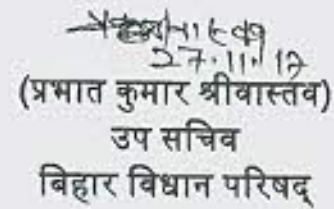 27.11.17
(प्रभात कुमार श्रीवास्तव)
उप सचिव
बिहार विधान परिषद्